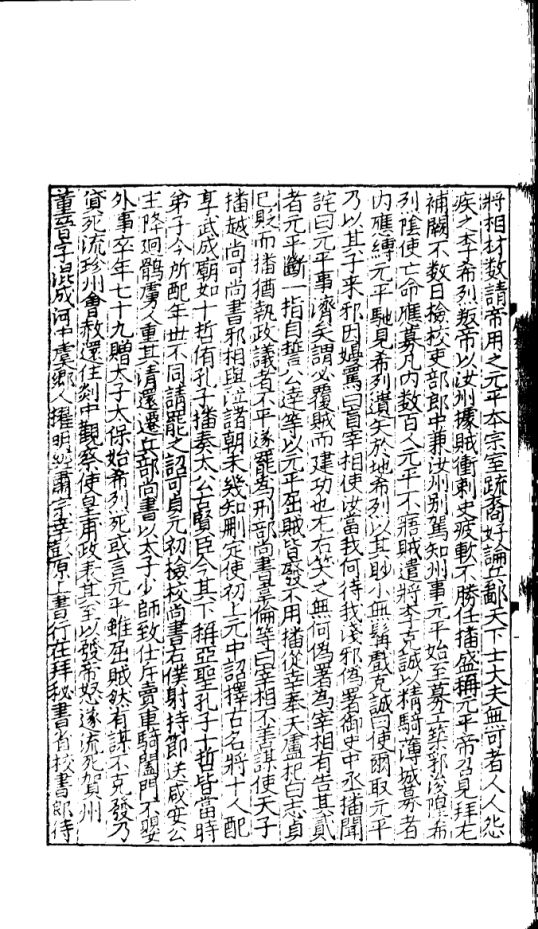 將相材數請帝用之元平本宗室疏裔好論兵鄙天下士大夫無可者人人怨
疾之李希烈叛帝以汝州據賊衝刺史疲軟不勝任播盛稱元平帝召見拜左
補闕不數日檢校吏部郎中兼汝州別駕知州事元平始至募工築郛浚隍希
列陰使亡命應募凡內數百人元平不寤賊遣將李克誠以精騎薄城募者
內應縛元平馳見希列遺矢於地希列以其眇小無髯戲克誠曰使爾取元平
乃以其子來邪因嫚罵曰盲宰相使汝當我何待我淺邪偽署御史中丞播聞
詫曰元平事濟矣謂必覆賊而建功也左右笑之無何偽署為宰相有告其貳
者元平斷一指自誓公達等以元平屈賊皆廢不用播從幸奉天盧杞白志貞
已貶而播猶執政議者不平遂罷為刑部尚書韋倫等曰宰相不善謀使天子
播越尚可尚書邪相與泣諸朝未幾知刪定使初上元中詔擇古名將十人配
享武成廟如十哲侑孔子播奏太公古賢臣今其下稱亞聖孔子十哲皆當時
弟子今所配年世不同請罷之詔可貞元初檢校尚書右僕射持節送咸安公
主降迴鶻虜人重其清還遷兵部尚書以太子少師致仕斥賣車騎闔門不嬰
外事卒年七十九贈太子太保始希列死或言元平雖屈賊然有謀不克發乃
貸死流珍州會赦還住剡中觀察使皇甫政表其至以發帝怒遂流死賀州
董晉字混成河中虞鄉人擢明經肅宗幸彭原上書行在拜秘書省校書郎待